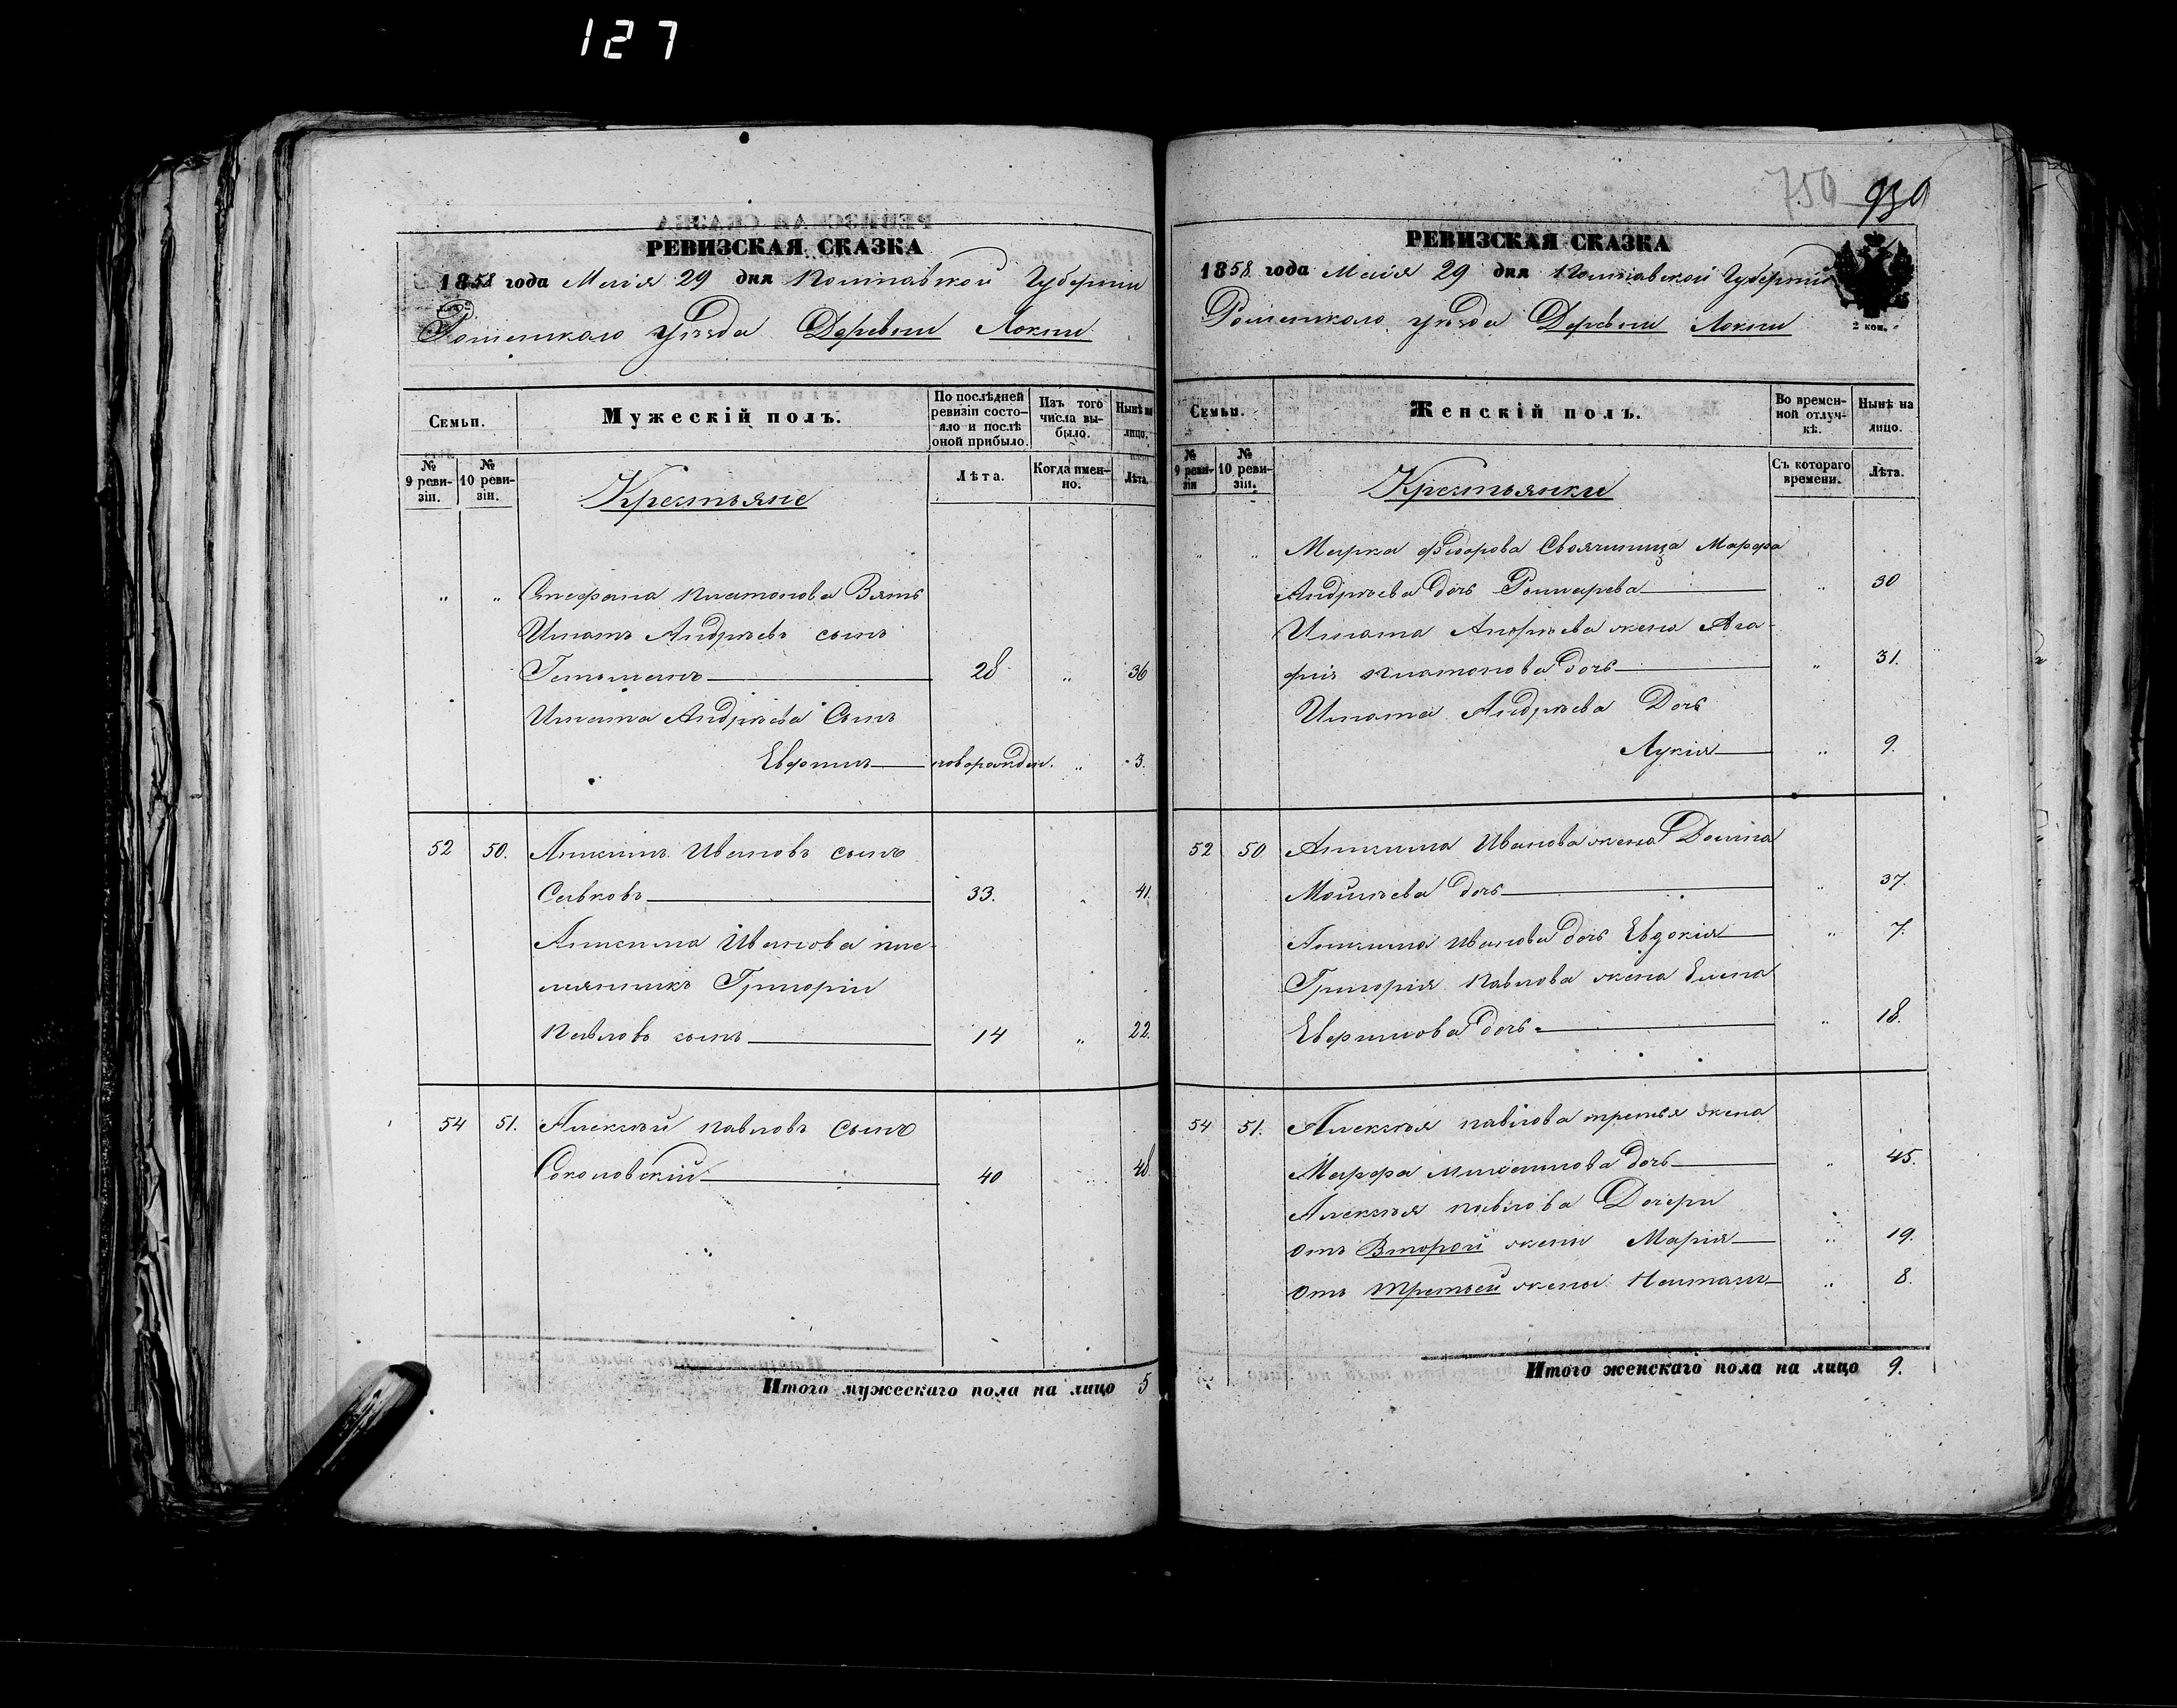 127
РЕВИЗСКАЯ СКАЗКА
1858 года Маія 29 дня Полтавской Губерніи
Роменскаго уѣзда Деревни Локни
Семьи.
Мужескій полъ.
По послѣдней ревизіи состояло и послѣ оной прибыло.
Изъ того числа выбыло.
Нынѣ на лицо.
№ 9 ревизіи.
№ 10 ревизіи.
Крестьяне
Лѣта.
Когда именно.
Лѣта.
" " Стефана Платонова Зять
Игнатъ Андрѣевъ сынъ
Гетьманъ 28 " 36
Игната Андрѣева Сынъ
Евфимъ новорожден. " 3.
52 50. Анисимъ Ивановъ сынъ
Савковъ 33. " 41.
Анисима Иванова пле-
мянникъ Григорій
Павловъ сынъ 14 " 22.
54 51. Алексѣй Павловъ Сынъ
Соколовскій 40 " 48
Итого мужескаго пола на лицо 5
750 930
РЕВИЗСКАЯ СКАЗКА
1858 года Маія 29 дня Полтавской Губерніи
Роменскаго уѣзда Деревни Локни
2 коп.
Семьи.
Женскій полъ.
Во временной отлучкѣ.
Нынѣ на лицо.
№ 9 ревизіи
№ 10 ревизіи.
Крестьянки
Съ котораго времени.
Лѣта.
" " Марка Федорова Своячиница Марфа
Андрѣева дочь " 30
Игната Андрѣева жена Ага-
фія Платонова дочь " 31.
Игната Андрѣева Дочь
Лукія " 9.
52 50 Анисима Иванова жена Домна
Моисѣева дочь " 37.
Анисима Иванова дочь Евдокія " 7.
Григорія Павлова жена Елена
Евфимова дочь " 18.
54 51. Алексѣя Павлова третья жена
Марфа Михайлова дочь " 45.
Алексѣя Павлова Дочери
отъ Второй жены Марія " 19.
отъ Третьей жены " 8.
Итого женскаго пола на лицо 9.